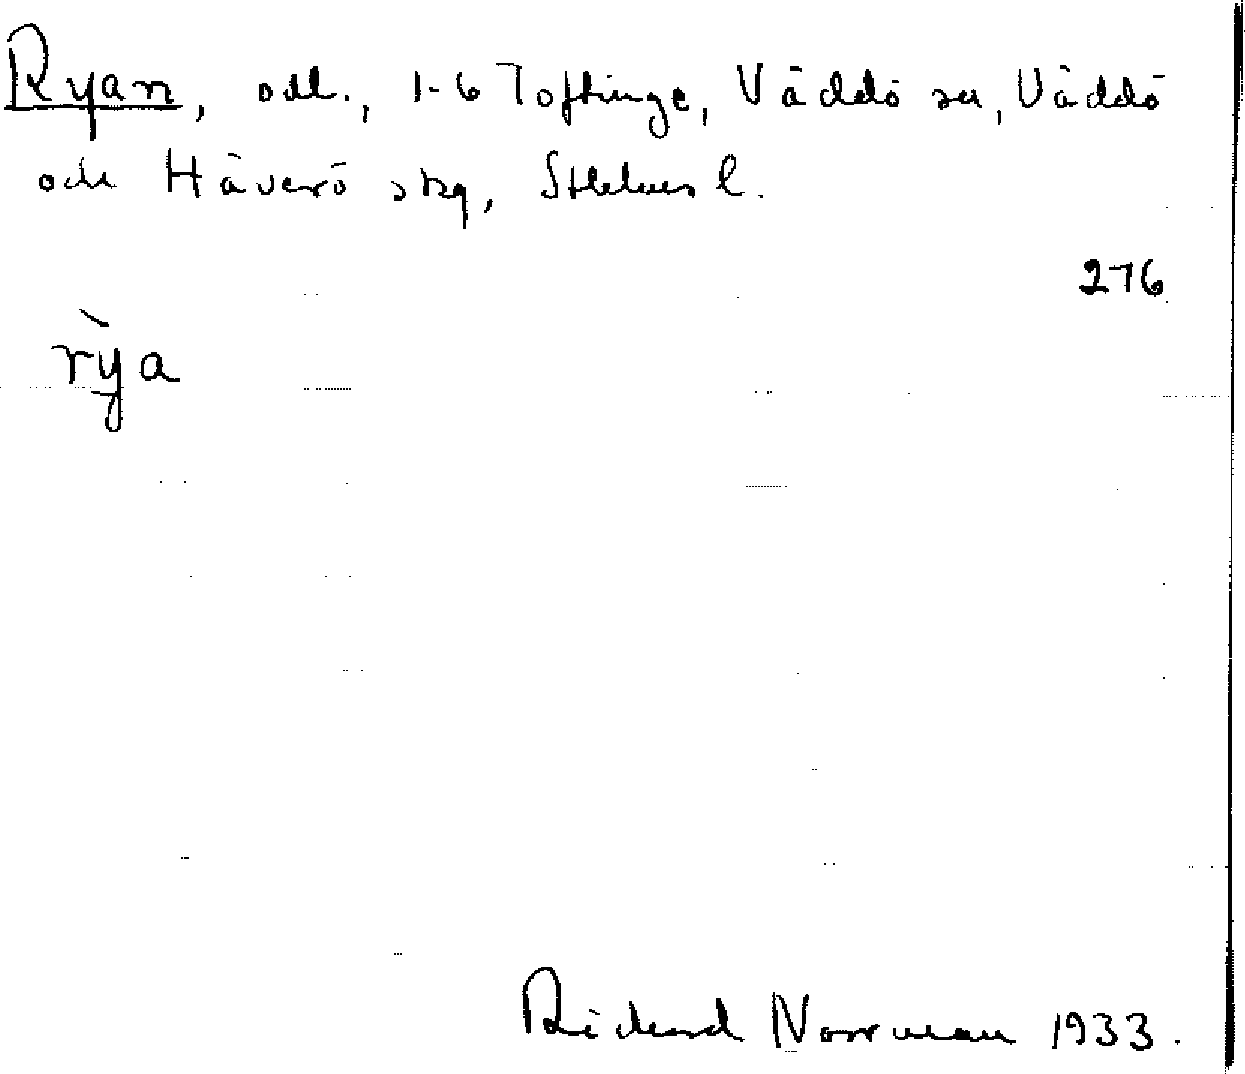 Ryan, odl., 1-6 Toftinge, Väddö sn, Väddö
och Häverö skg, Sthlms l.
276
rỳa
Richard Norrman 1933.